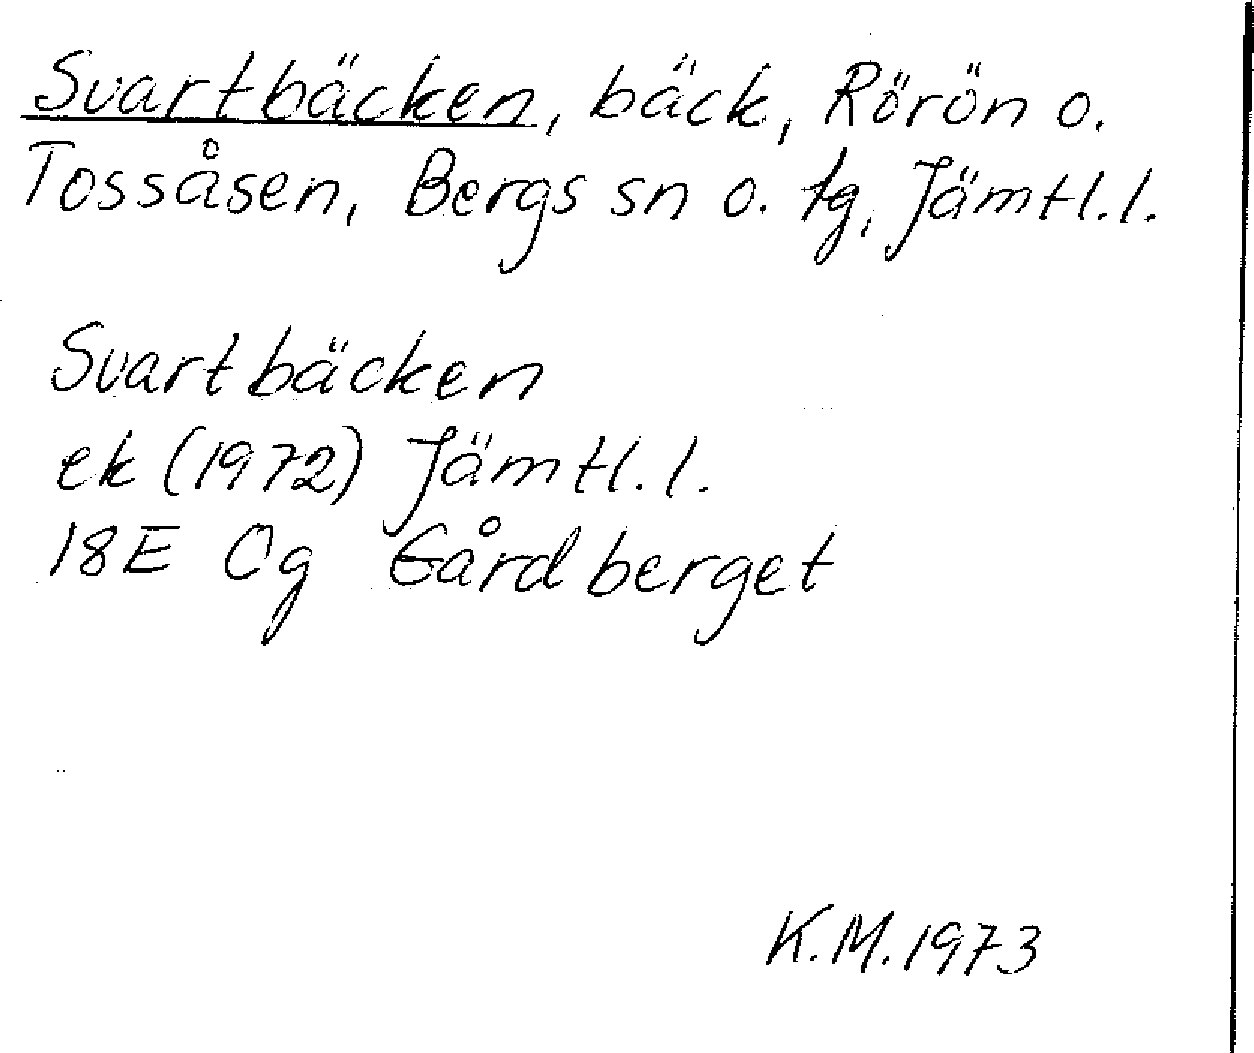 Svartbäcken, bäck, Rörön o.
Tossåsen, Bergs sn o. tg, Jämtl.l.
Svartbäcken
ek (1972) Jämtl. l.
18E Og Gårdberget
K.M. 1973